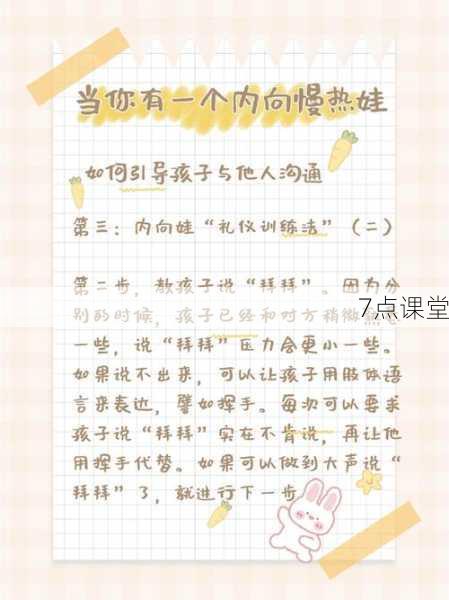 当你有一个内向慢热娃
如何引导孩子与他人沟通
第三：内向娃“礼仪训练法”（二）
第二步，教孩子说“拜拜”。因为分
7点课堂
别的时候，孩子已经和对方稍微熟悉
一些，说“拜拜”压力会更小一些。
如果说不出来，可以让孩子用肢体语
言来表达，譬如挥手。每次可以要求
孩子说“拜拜”实在不肯说，再让他
用挥手代替。如果可以做到大声说“
拜拜”了，就进行下一步